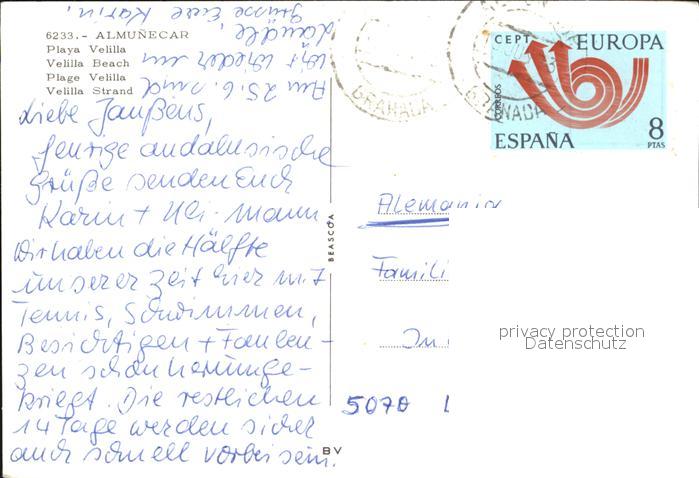 6233.- ALMUÑECAR
Playa Velilla
Velilla Beach
Plage Velilla
Velilla Strand
Liebe Janßens,
feurige andalusische
Grüße senden Euch
Karin + Uli-Mann
Wir haben die Hälfte
unserer Zeit hier mit
Tennis, Schwimmen,
Besichtigen + Faulen-
zen schon herumge-
kriegt. Die restlichen
14 Tage werden sicher
auch schnell vorbei sein.
Am 25.6. sind
wir wieder im
Ländle,
Grüsse Eure Karin,
BEASCOA
BV
GRANADA
GRANADA
CEPT
EUROPA
CORREOS
ESPAÑA
8
PTAS
Alemania
Famili
In
5070
privacy protection
Datenschutz